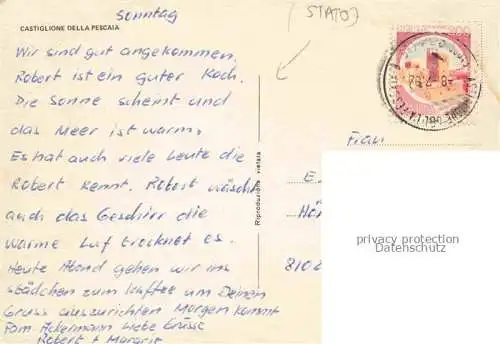 Sonntag
(STATO)
CASTIGLIONE DELLA PESCAIA
Wir sind gut angekommen.
Robert ist ein guter Koch.
Die Sonne scheint und
das Meer ist warm.
Es hat auch viele Leute die
Robert kennt. Robert wäscht
auch das Geschirr die
warme Luf trocknet es.
Heute Abend gehen wir ins
städchen zum Kaffee um Deinen
Gruss auszurichten Morgen kommt
Fam. Ackermann liebe Grüsse
Robert + Margrit
Riproduzione vietata
Frau
E
Hö
810
privacy protection
Datenschutz